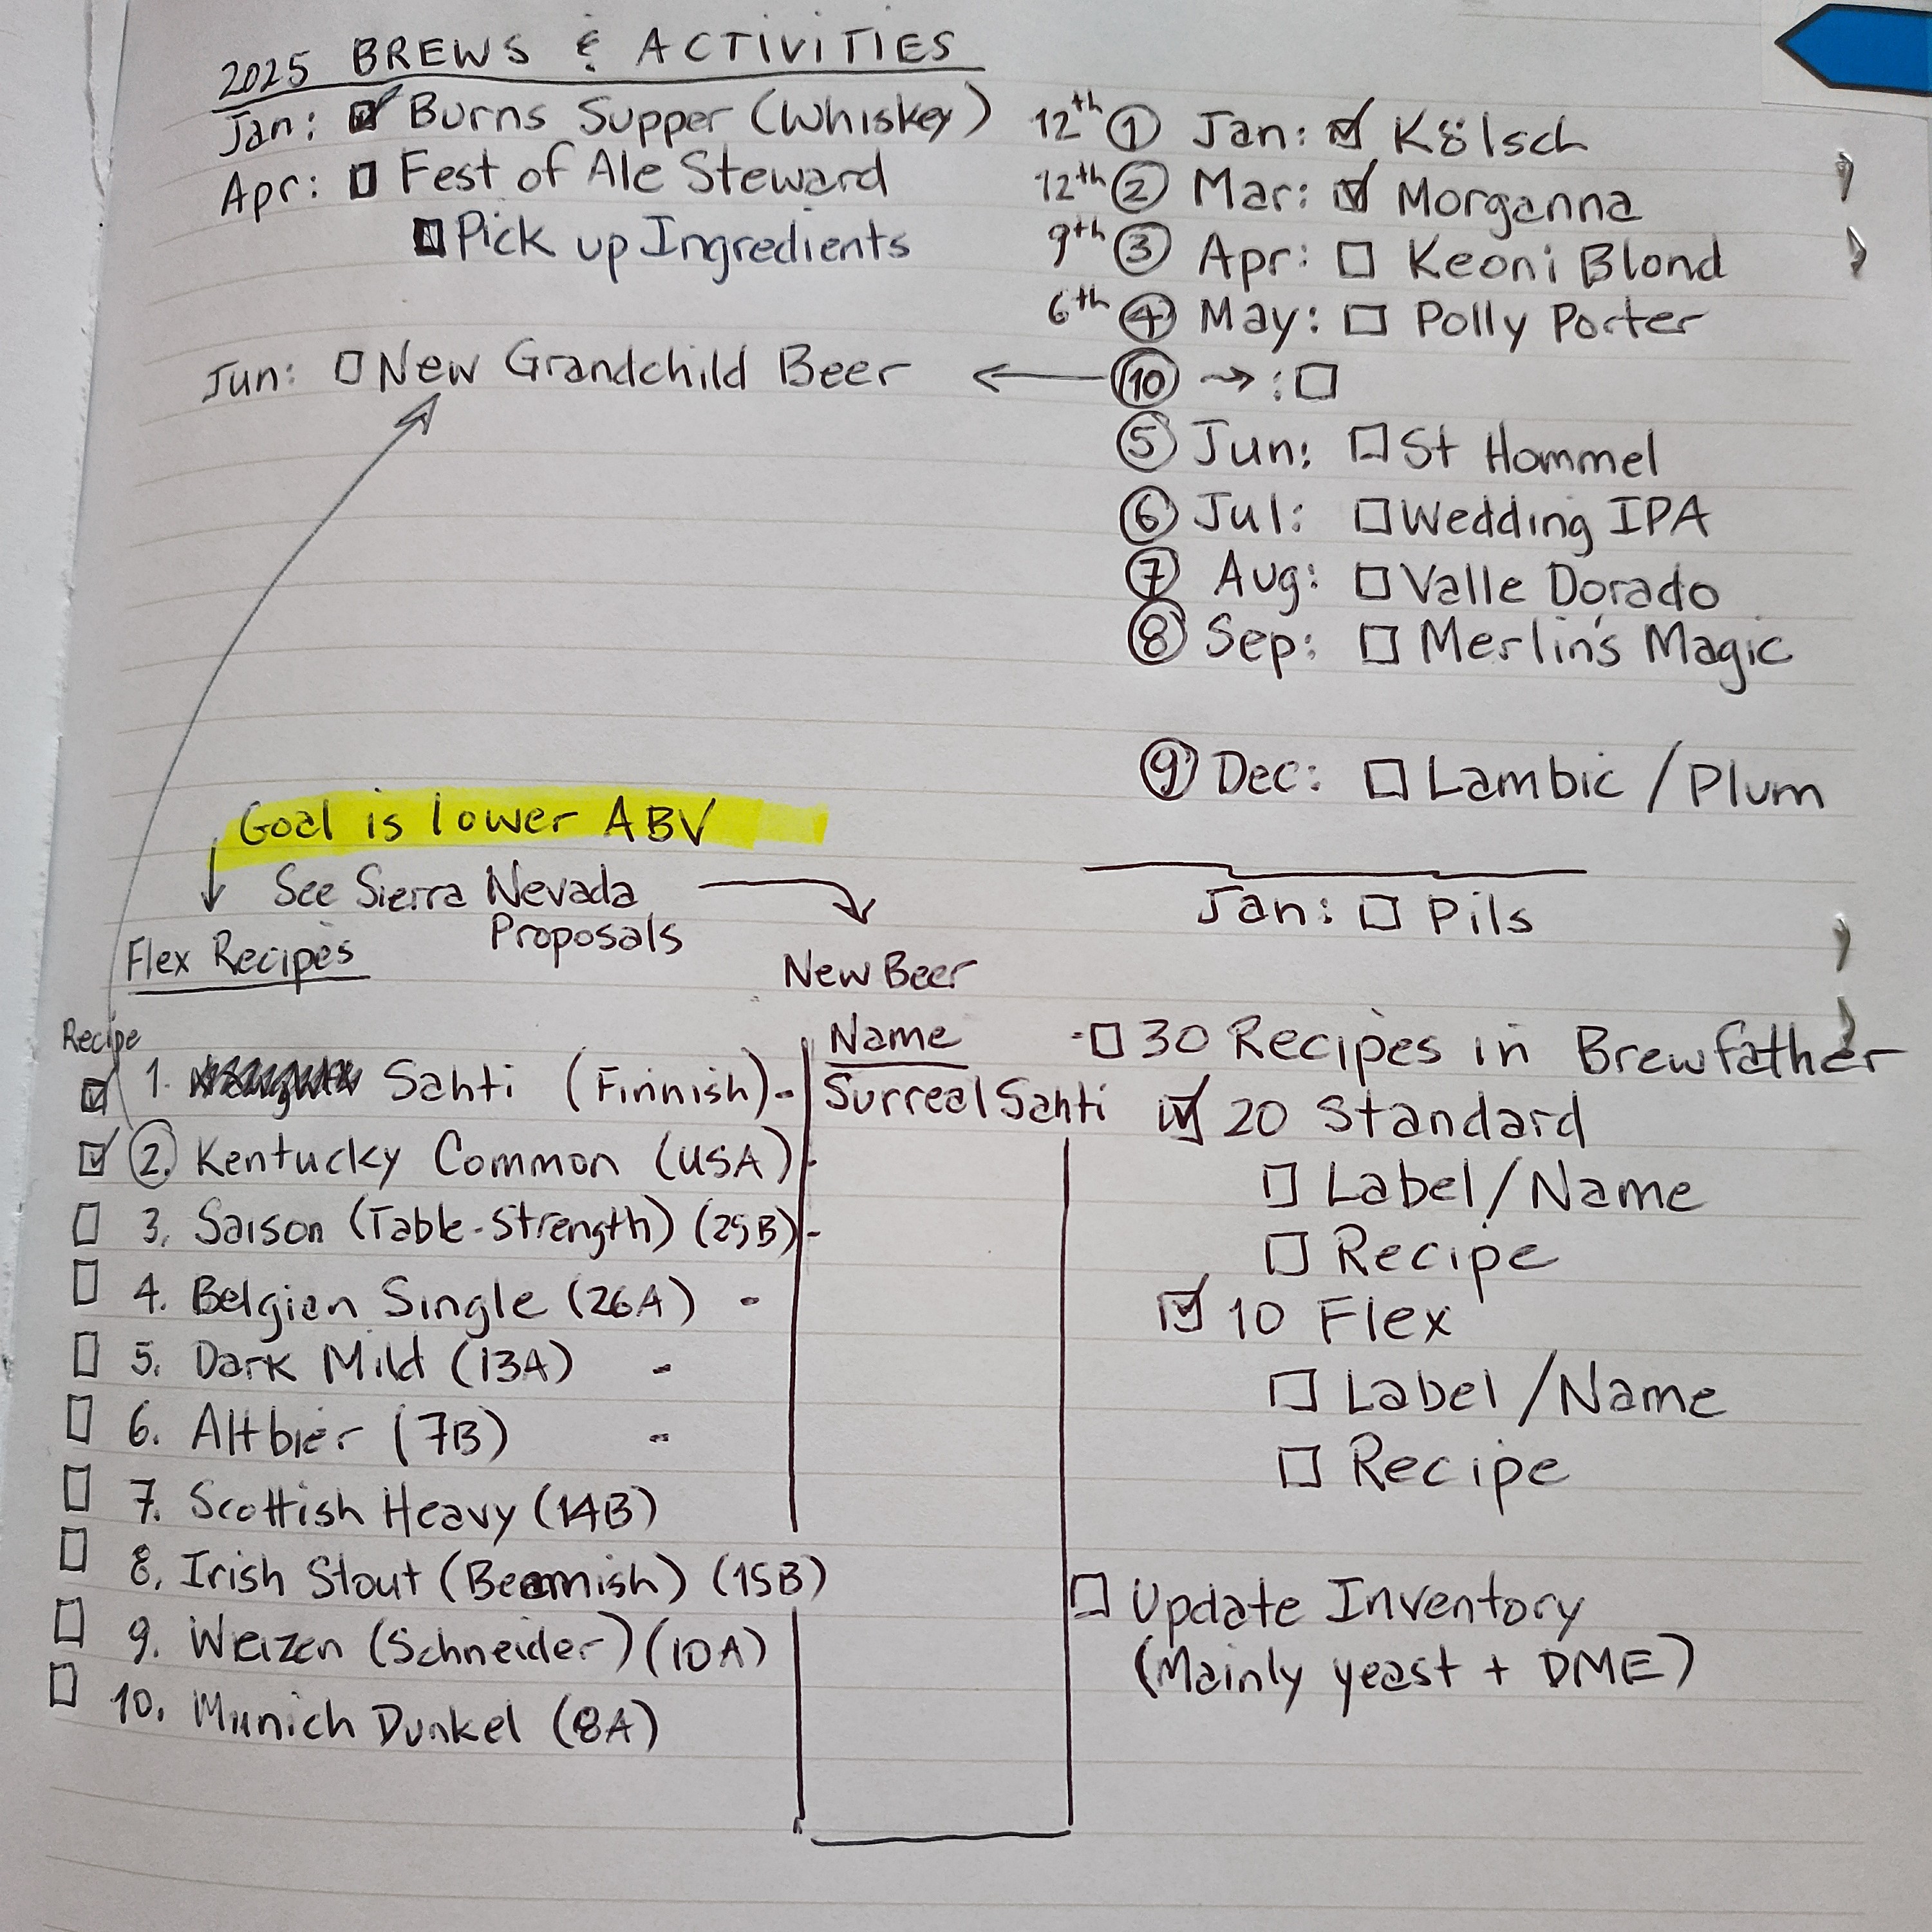 2025 BREWS & ACTIVITIES
Jan: Burns Supper (Whiskey)
Apr: Fest of Ale Steward
Pick up Ingredients
Jun: New Grandchild Beer
12th 1 Jan: Kölsch
12th 2 Mar: Morganna
9th 3 Apr: Keoni Blond
6th 4 May: Polly Porter
10 → :
5 Jun: St Hommel
6 Jul: Wedding IPA
7 Aug: Valle Dorado
8 Sep: Merlin's Magic
9 Dec: Lambic / Plum
Jan: Pils
Goal is lower ABV
See Sierra Nevada
Proposals
Flex Recipes
New Beer
Recipe
Name
1. Sahti (Finnish) - Surreal Sahti
2. Kentucky Common (USA) -
3. Saison (Table-Strength) (25B) -
4. Belgian Single (26A) -
5. Dark Mild (13A) -
6. Altbier (7B) -
7. Scottish Heavy (14B)
8. Irish Stout (Beamish) (15B)
9. Weizen (Schneider) (10A)
10. Munich Dunkel (8A)
30 Recipes in Brewfather
20 Standard
Label/Name
Recipe
10 Flex
Label/Name
Recipe
Update Inventory
(Mainly yeast + DME)